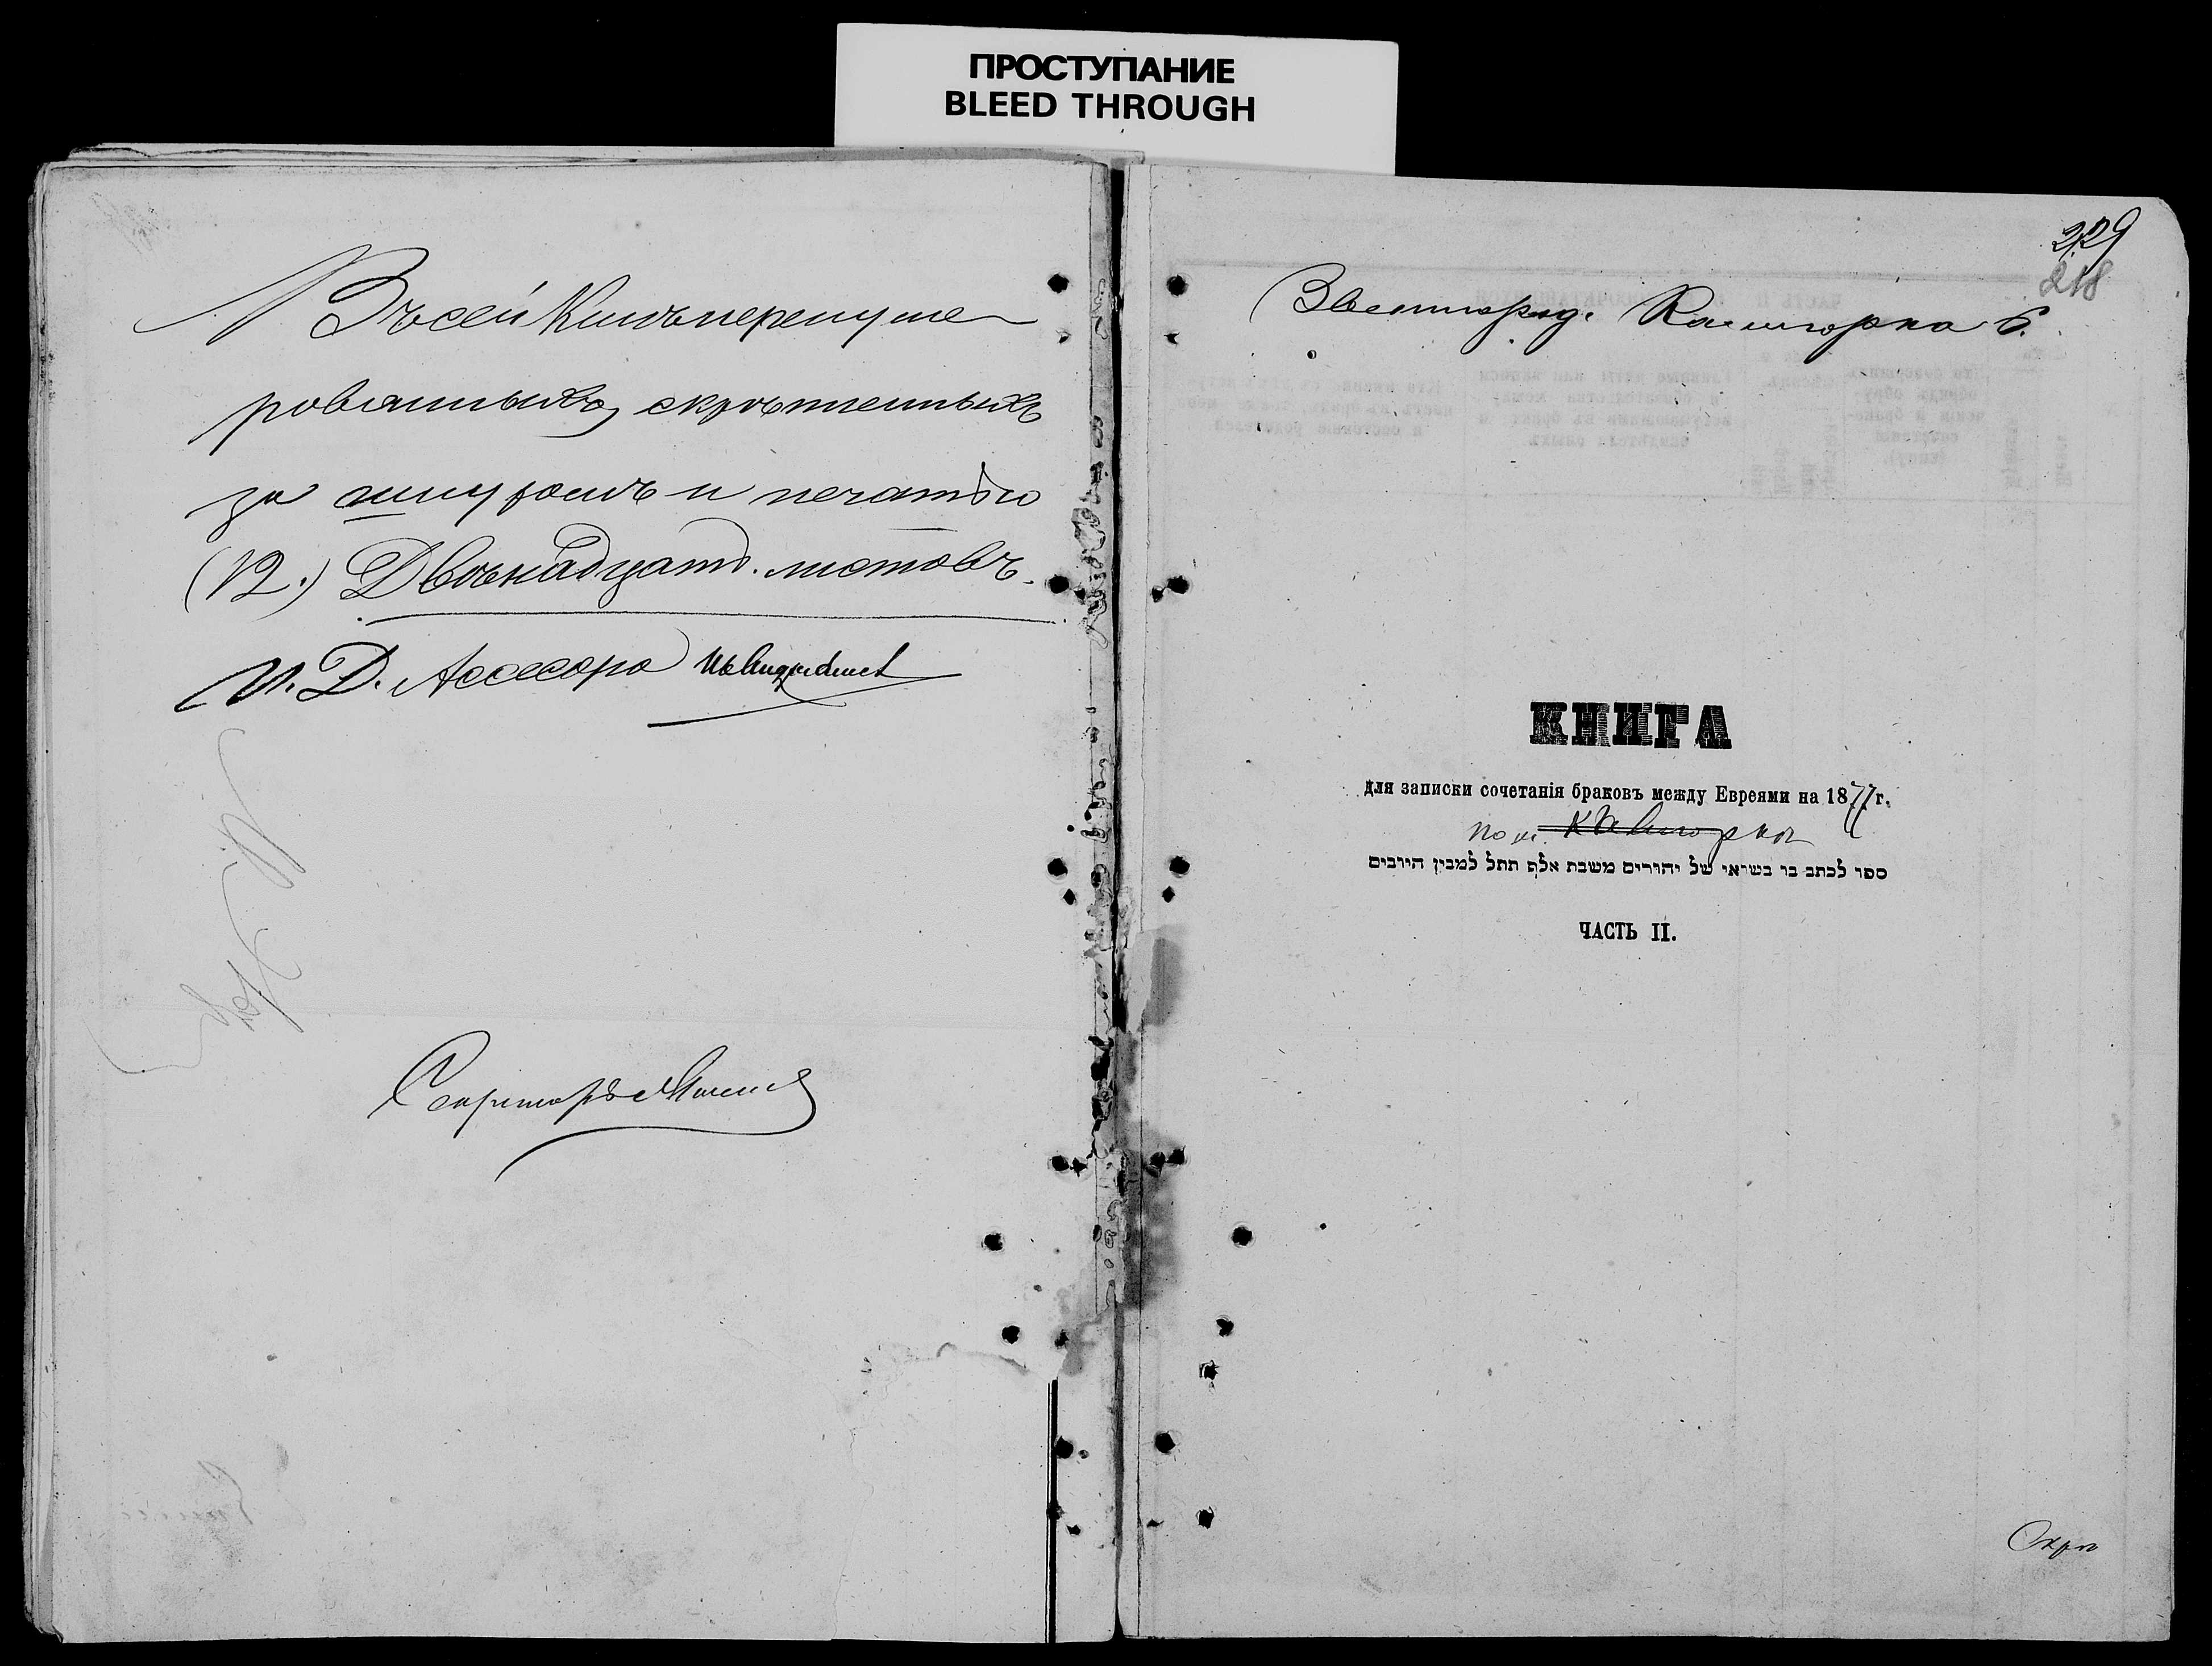 ПРОСТУПАНИЕ
BLEED THROUGH
Въ сей Книгѣ перенуме
рованныхъ, скрѣпленныхъ
за шнуромъ и печатью
(12.) Двѣнадцать листовъ.
И. Д. Ассесора
Секретарь
229
218
Звенигород. Кашторка б.
КНИГА
для записки сочетанія браковъ между Евреями на 1877 г.
по м.
ספר לכתב בו נשואי של יהודים משנת אלף תתל למנין הרבים
ЧАСТЬ II.
Скрѣ